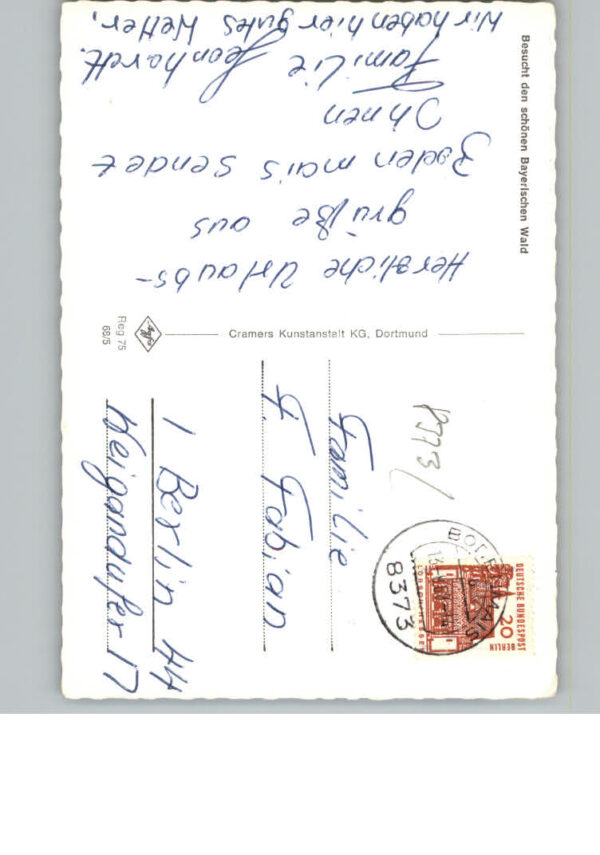 Besucht den schönen Bayerischen Wald
Herzliche Urlaubs-
grüße aus
Bodenmais sendet
Ihnen
Familie Leonhardt.
Wir haben hier gutes Wetter.
Cramers Kunstanstalt KG, Dortmund
Agfa
Reg 75
68/5
8373
BODENMAIS
DEUTSCHE BUNDESPOST
BERLIN
20
Familie
F. Fabian
1 Berlin 44
Weigandufer 17